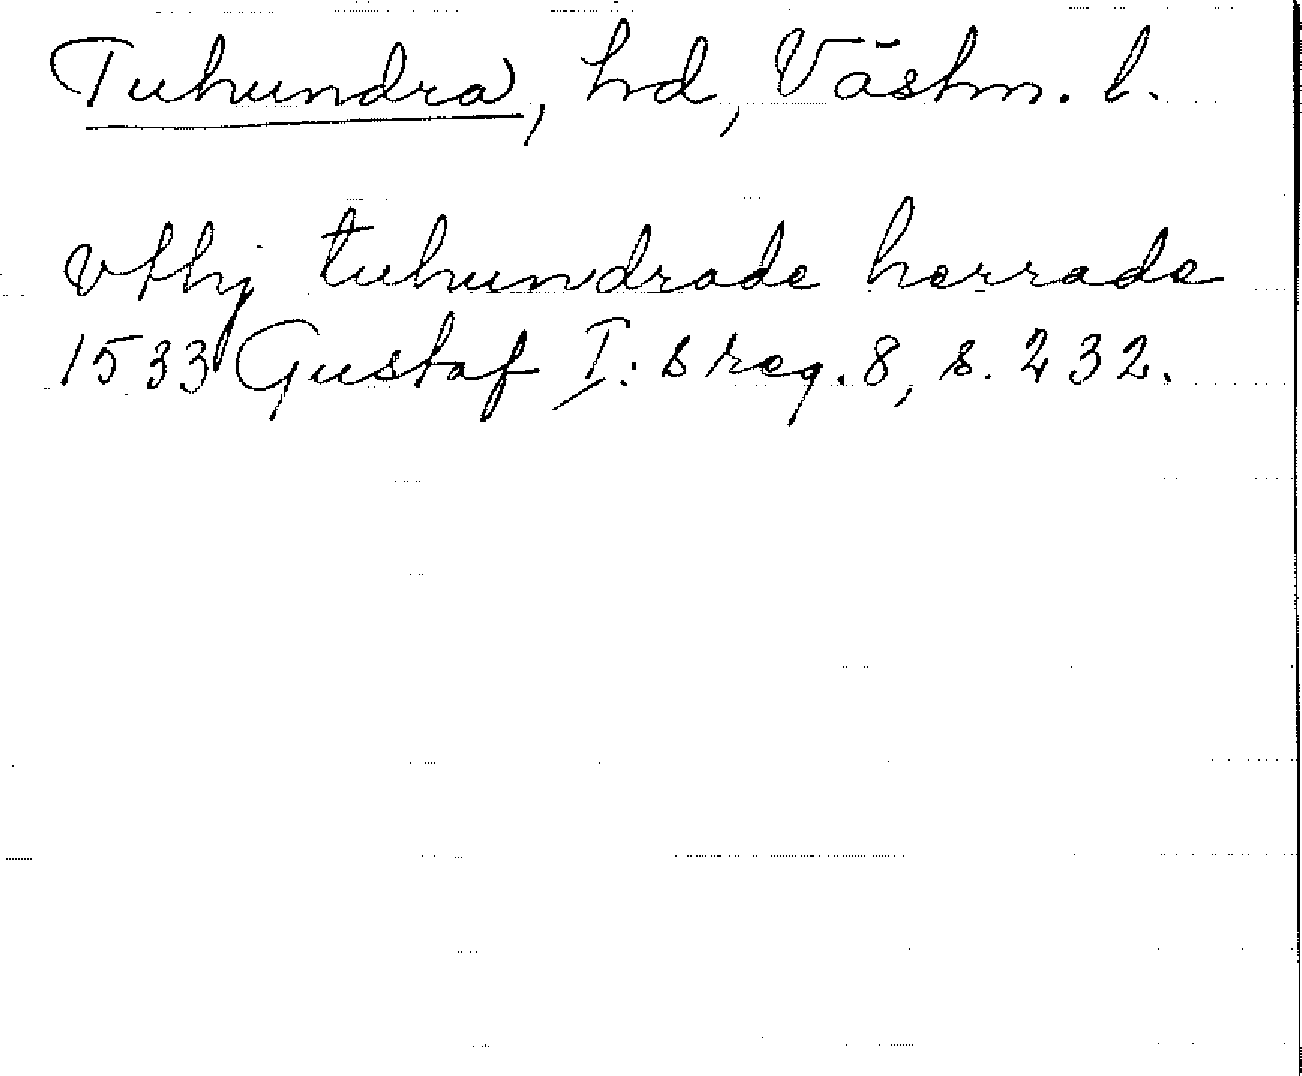 Tuhundra, hd, Västm. l.
vthj tuhundrade herrade
1533 Gustaf I:s reg. 8, s. 232.